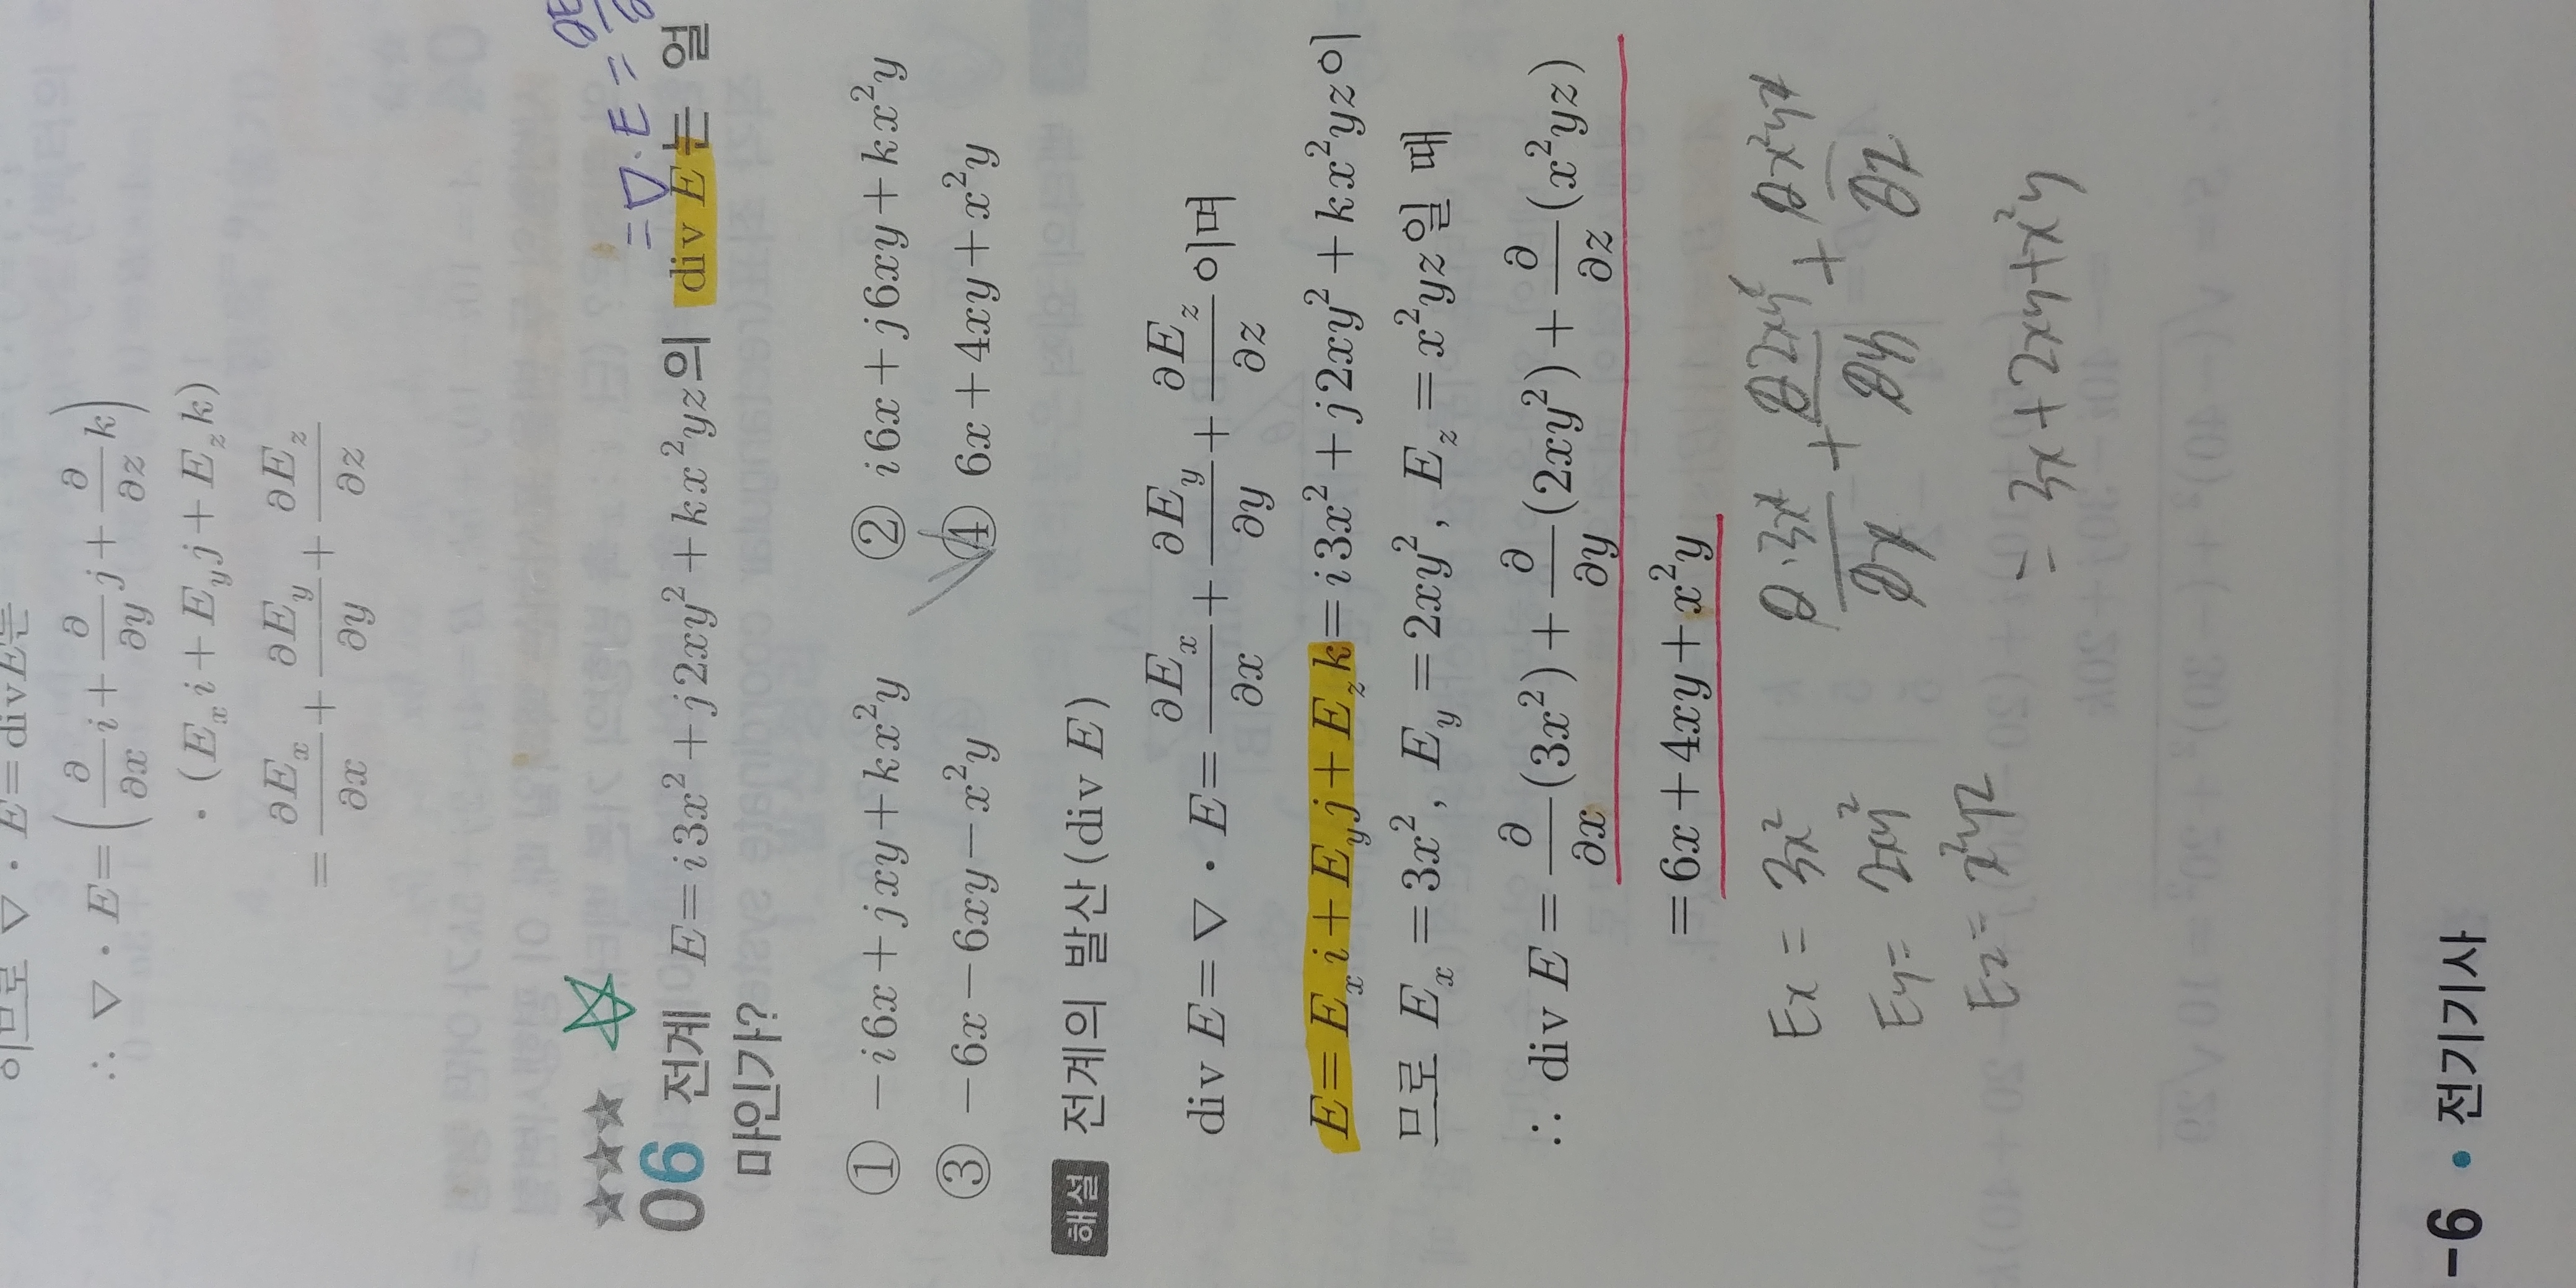 이므로 ∇ · E = divE는
∴ ∇ · E = (∂/∂x i + ∂/∂y j + ∂/∂z k)
· (E_x i + E_y j + E_z k)
= ∂E_x/∂x + ∂E_y/∂y + ∂E_z/∂z
= ∇·E =
★★★
06 전계 E = i3x² + j2xy² + kx²yz의 div E는 얼
마인가?
① −i6x + jxy + kx²y ② i6x + j6xy + kx²y
③ −6x − 6xy − x²y ④ 6x + 4xy + x²y
해설 전계의 발산 (div E)
div E = ∇ · E = ∂E_x/∂x + ∂E_y/∂y + ∂E_z/∂z 이며
E = E_x i + E_y j + E_z k = i3x² + j2xy² + kx²yz이
므로 E_x = 3x², E_y = 2xy², E_z = x²yz일 때
∴ div E = ∂/∂x (3x²) + ∂/∂y (2xy²) + ∂/∂z (x²yz)
= 6x + 4xy + x²y
Ex = 3x² ∂·3x/∂x + ∂2xy²/∂y + ∂x²yz/∂z
Ey = 2xy²
Ez = x²yz = 3x + 2xy + x²y
-6 • 전기기사